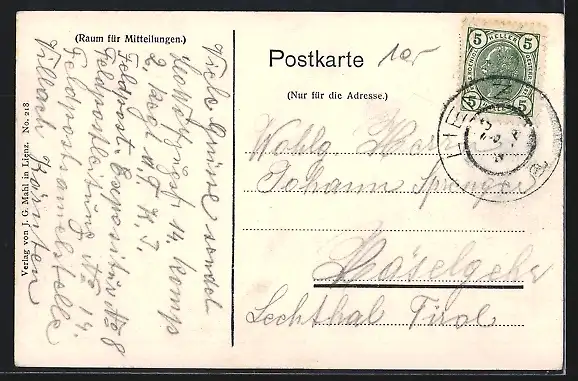 (Raum für Mitteilungen.)
Viele Grüsse sendet
14. Komp
2. Regt. d. T. K. J.
Feldpost Expositur No 8
Feldpostleitung No 14.
Feldpostsammelstelle
Villach Kärnten
Verlag von J. G. Mahl in Lienz. No. 218
Postkarte
(Nur für die Adresse.)
5 HELLER 5
5 5
LIENZ
Wohlg Herrn
Johann Sprenger
Häselgehr
Lechthal Tirol